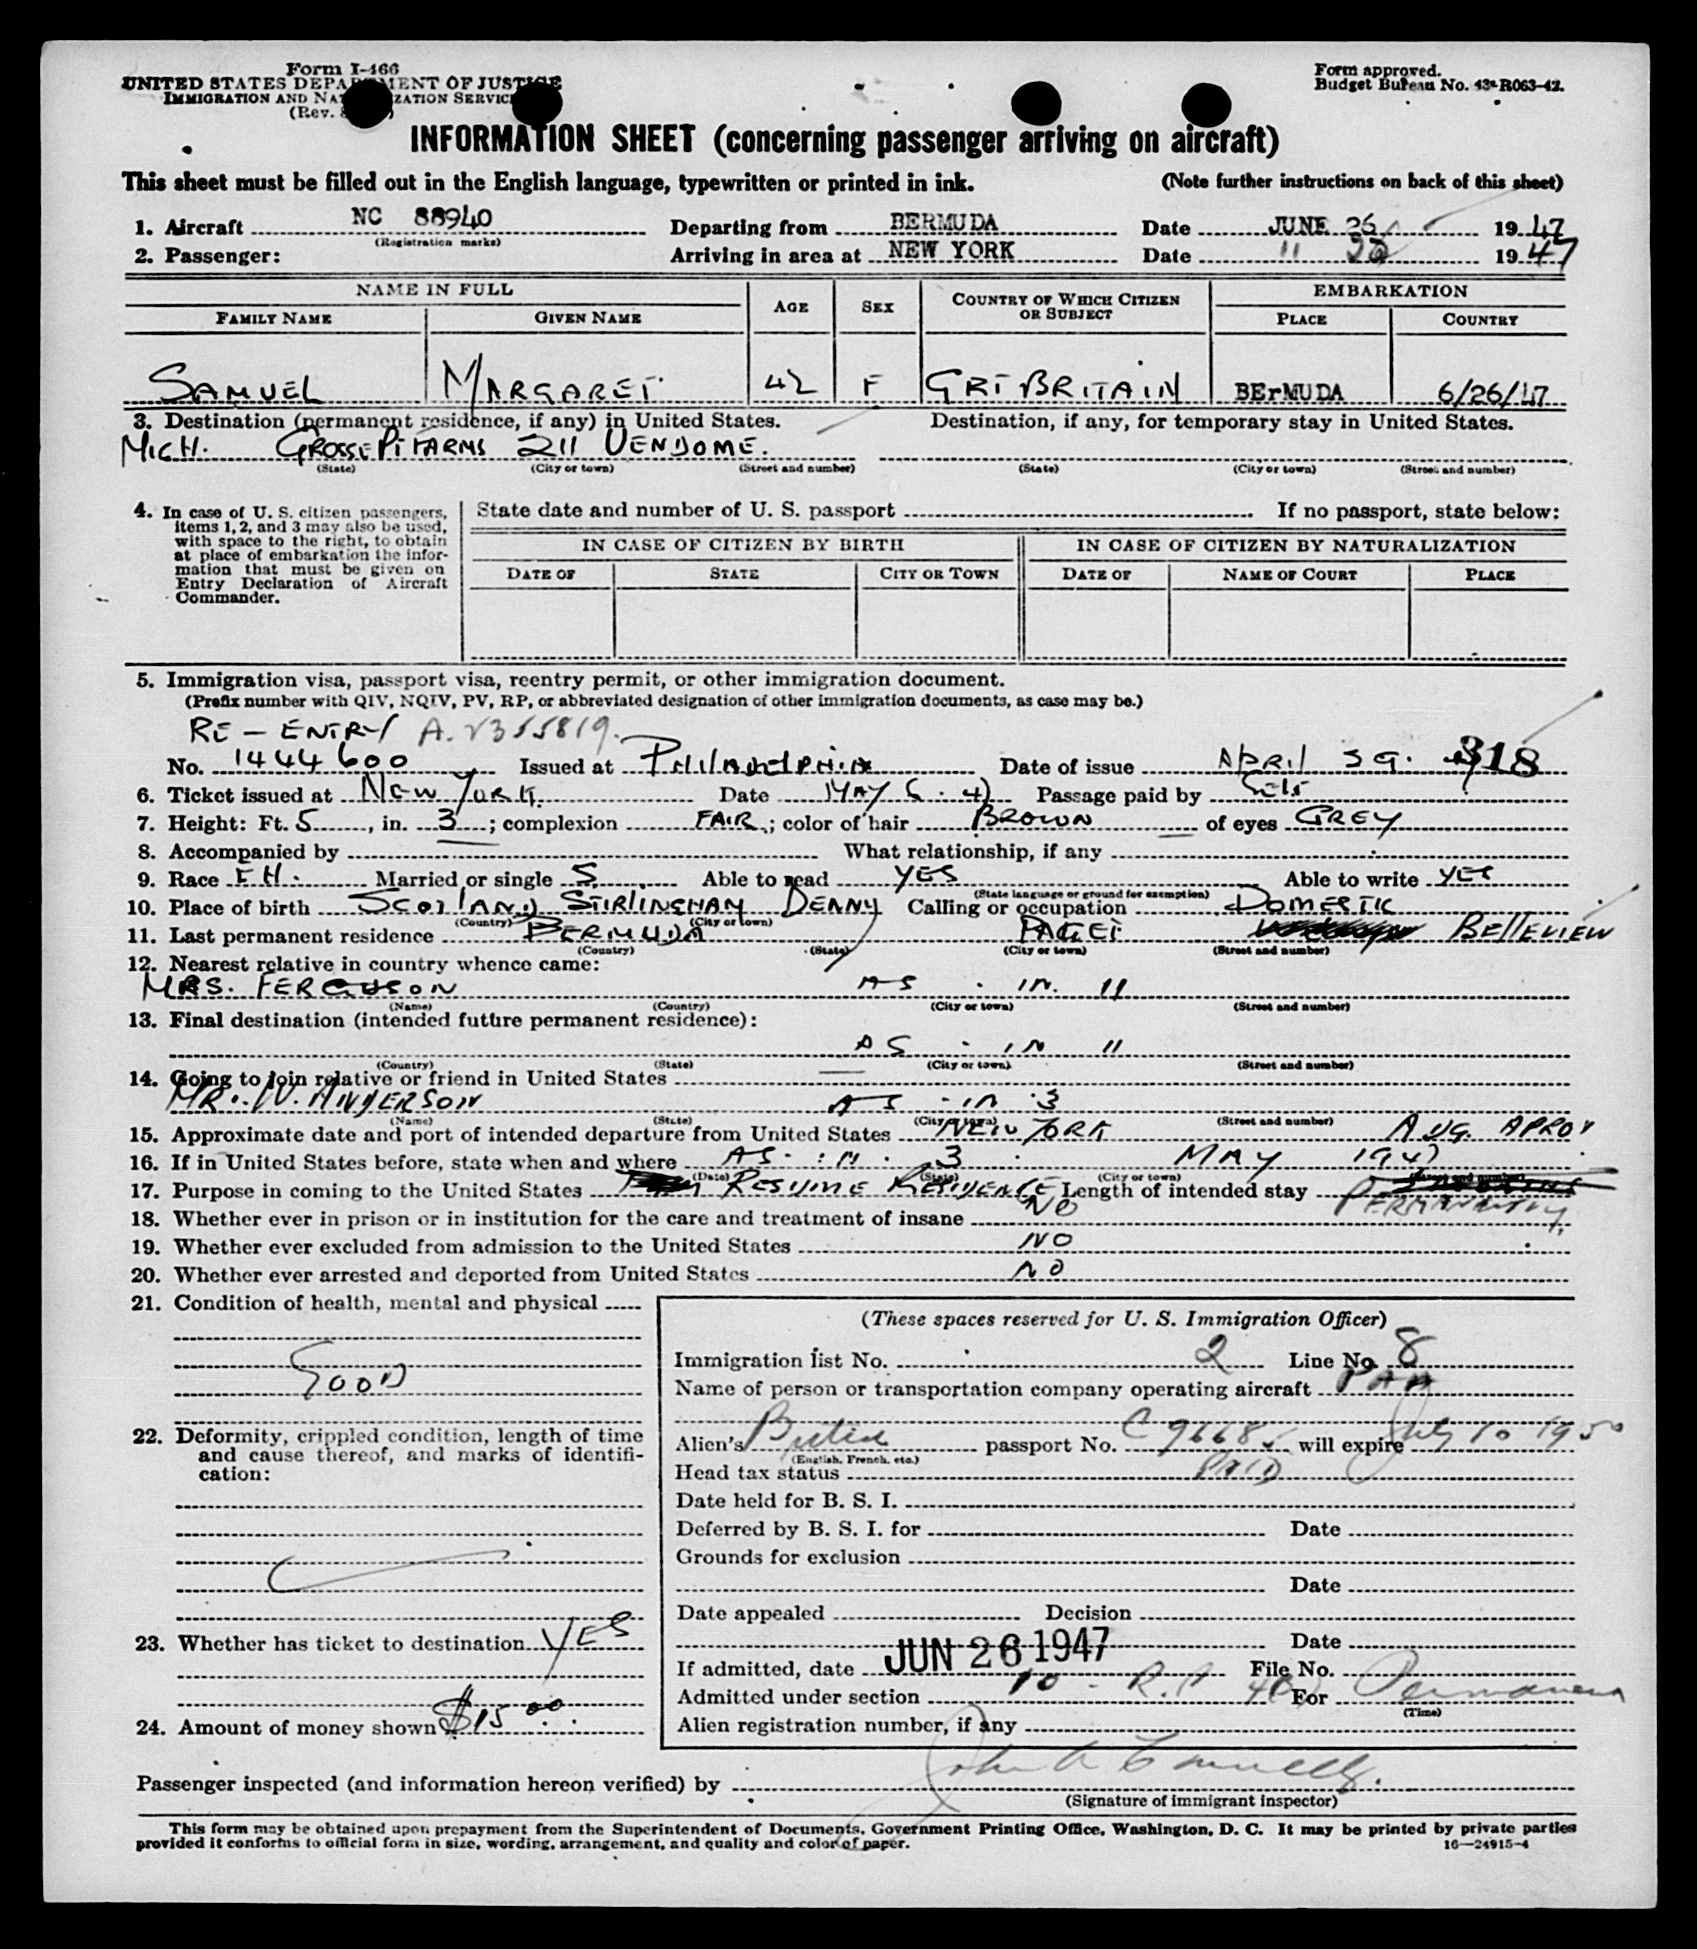 Form I-466
UNITED STATES DEPARTMENT OF JUSTICE
IMMIGRATION AND NATURALIZATION SERVICE
(Rev.
Form approved.
Budget Bureau No. 43-R063-42.
INFORMATION SHEET (concerning passenger arriving on aircraft)
This sheet must be filled out in the English language, typewritten or printed in ink. (Note further instructions on back of this sheet)
1. Aircraft NC 88940 Departing from BERMUDA Date JUNE 26 1947
(Registration marks)
2. Passenger: Arriving in area at NEW YORK Date " 1947
NAME IN FULL AGE SEX COUNTRY OF WHICH CITIZEN OR SUBJECT EMBARKATION
FAMILY NAME GIVEN NAME PLACE COUNTRY
SAMUEL MARGARET 42 F GRT BRITAIN BErMUDA 6/26/47
3. Destination (permanent residence, if any) in United States. Destination, if any, for temporary stay in United States.
MICH. GROSSE PT FARMS 211 VENDOME.
(State) (City or town) (Street and number) (State) (City or town) (Street and number)
4. In case of U. S. citizen passengers, items 1, 2, and 3 may also be used, with space to the right, to obtain at place of embarkation the information that must be given on Entry Declaration of Aircraft Commander.
State date and number of U. S. passport If no passport, state below:
IN CASE OF CITIZEN BY BIRTH IN CASE OF CITIZEN BY NATURALIZATION
DATE OF STATE CITY OR TOWN DATE OF NAME OF COURT PLACE
5. Immigration visa, passport visa, reentry permit, or other immigration document.
(Prefix number with QIV, NQIV, PV, RP, or abbreviated designation of other immigration documents, as case may be.)
RE-ENTRY A. 2355819.
No. 1444600 Issued at PHILADELPHIA Date of issue APRIL 318
6. Ticket issued at NEW YORK. Date MAY Passage paid by Self
7. Height: Ft. 5, in. 3; complexion FAIR; color of hair BROWN of eyes GREY
8. Accompanied by What relationship, if any
9. Race Married or single S. Able to read YES Able to write YES
(State language or ground for exemption)
10. Place of birth SCOTLAND STIRLINGHAM DENNY Calling or occupation DOMESTIC
(Country) (City or town)
11. Last permanent residence BERMUDA PAGET BELLEVIEW
(Country) (State) (City or town) (Street and number)
12. Nearest relative in country whence came:
MRS. FERGUSON AS IN 11
(Name) (Country) (City or town) (Street and number)
13. Final destination (intended future permanent residence):
AS IN 11
(Country) (State) (City or town) (Street and number)
14. Going to join relative or friend in United States
MR. W. ANDERSON AS IN 3
(Name) (State) (City or town) (Street and number)
15. Approximate date and port of intended departure from United States NEW YORK AUG. APROX
16. If in United States before, state when and where AS IN 3 MAY 1947
(Date) (State) (City or town) (Street and number)
17. Purpose in coming to the United States RESUME RESIDENCE Length of intended stay PERMANENTLY
18. Whether ever in prison or in institution for the care and treatment of insane NO
19. Whether ever excluded from admission to the United States NO
20. Whether ever arrested and deported from United States NO
21. Condition of health, mental and physical
GOOD
22. Deformity, crippled condition, length of time and cause thereof, and marks of identification:
23. Whether has ticket to destination YES
24. Amount of money shown $15.00
(These spaces reserved for U. S. Immigration Officer)
Immigration list No. 2 Line No. 8
Name of person or transportation company operating aircraft PAA
Alien's passport No. C 9668 will expire July 10 1950
(English, French, etc.)
Head tax status PAID
Date held for B. S. I.
Deferred by B. S. I. for Date
Grounds for exclusion
Date
Date appealed Decision
Date
If admitted, date JUN 26 1947 File No.
Admitted under section 10 - For Permanent
(Time)
Alien registration number, if any
Passenger inspected (and information hereon verified) by
(Signature of immigrant inspector)
This form may be obtained upon prepayment from the Superintendent of Documents, Government Printing Office, Washington, D. C. It may be printed by private parties
provided it conforms to official form in size, wording, arrangement, and quality and color of paper. 16—24915-4